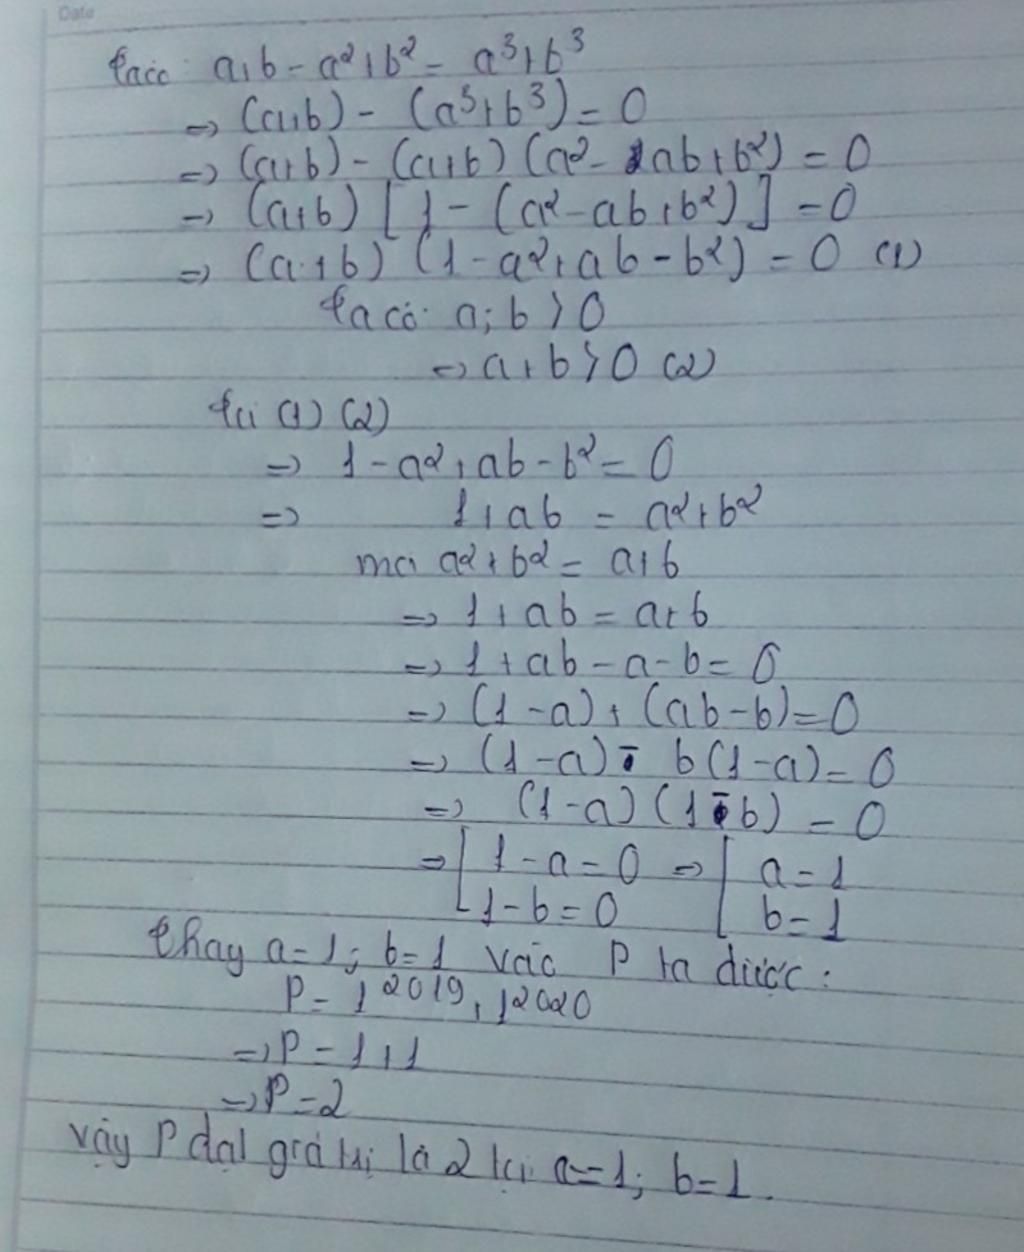 Date
ta có: a+b = a²+b² = a³+b³
=> (a+b) - (a³+b³) = 0
=> (a+b) - (a+b) (a² - ab+b²) = 0
=> (a+b) [1 - (a²-ab+b²)] = 0
=> (a+b) (1-a²+ab-b²) = 0 (1)
ta có: a; b > 0
=> a+b > 0 (2)
từ (1) (2)
=> 1-a²+ab-b² = 0
=> 1+ab = a²+b²
mà a²+b² = a+b
=> 1+ab = a+b
=> 1+ab-a-b = 0
=> (1-a) + (ab-b) = 0
=> (1-a) - b(1-a) = 0
=> (1-a) (1-b) = 0
=> [ 1-a=0 => [ a=1
1-b=0 b=1
thay a=1; b=1 vào P ta được:
P = 1²⁰¹⁹ + 1²⁰²⁰
=> P = 1+1
=> P = 2
vậy P đạt giá trị là 2 tại a=1; b=1.